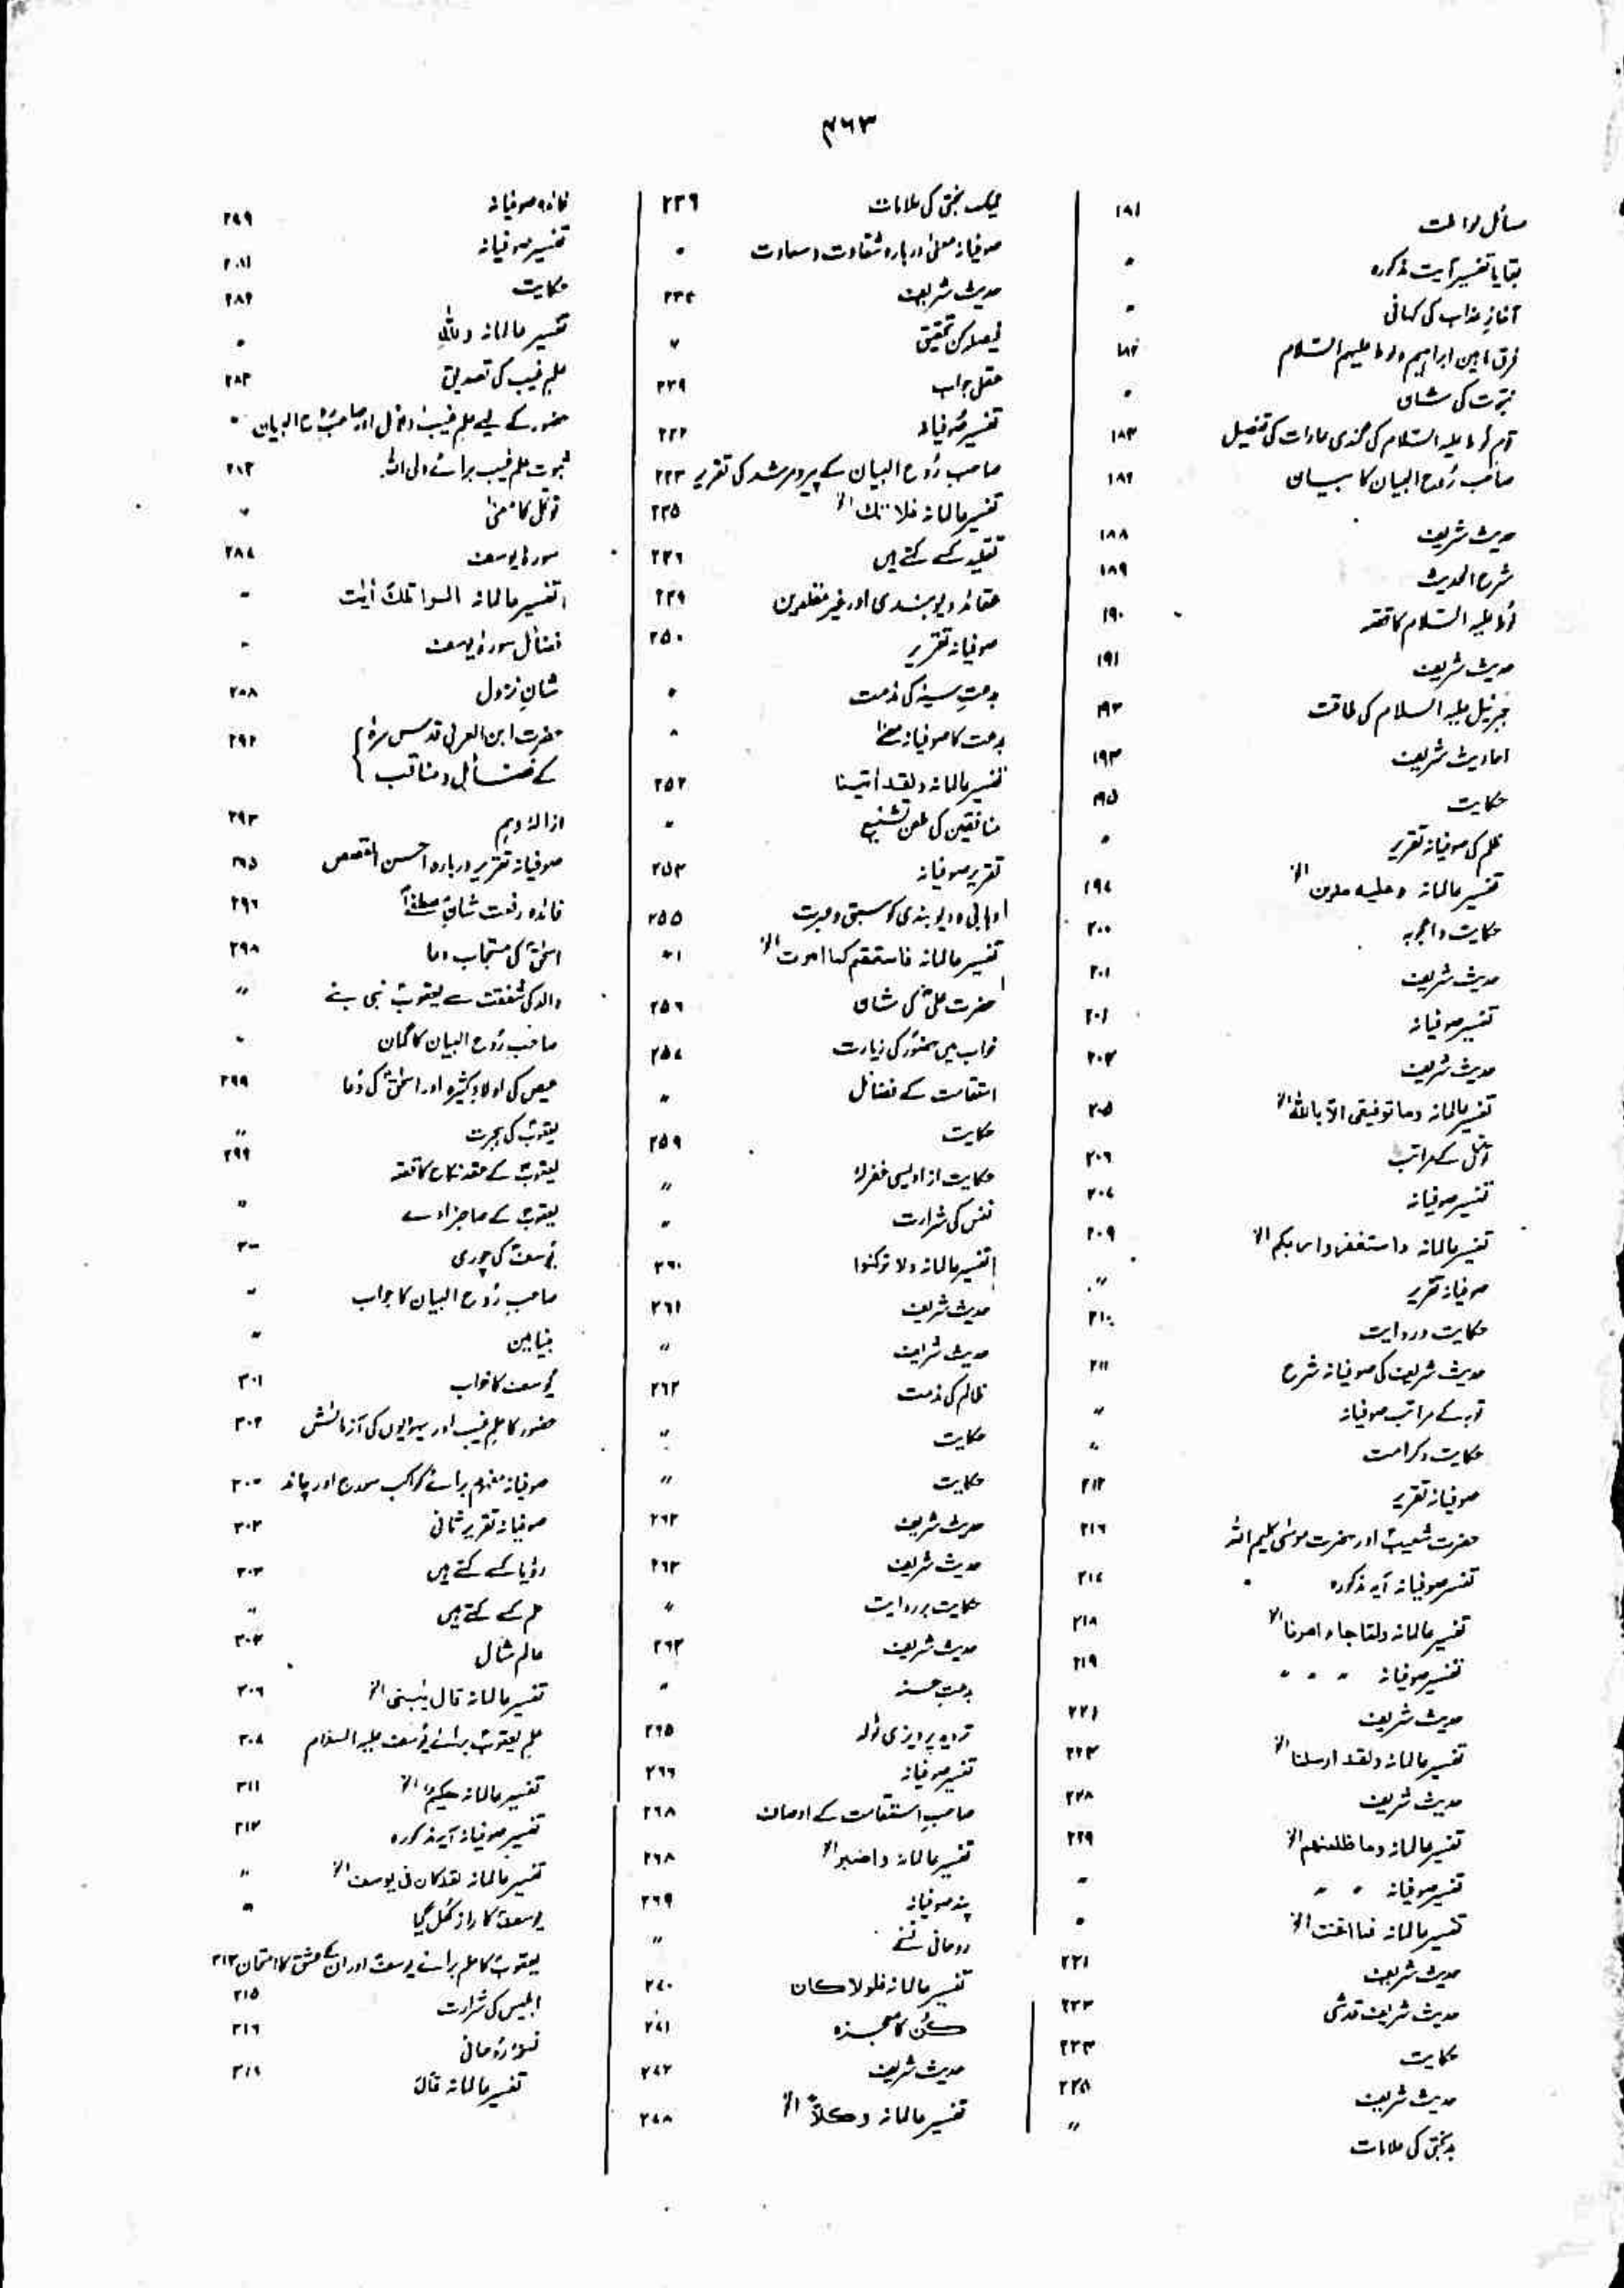 ۴۶۳
مسائل لواطت ۱۸۱
بقایا تفسیر آیت مذکورہ "
آغازِ عذاب کی کہانی "
فرق مابین ابراہیم و لوط علیہم السّلام
نبوّت کی شان "
قوم لُوط علیہ السّلام کی گندی عادات کی تفصیل ۱۸۳
صاحب رُوح البیان کا بیان ۱۸۶
حدیث شریف ۱۸۸
شرح الحدیث ۱۸۹
لُوط علیہ السّلام کا قصّہ ۱۹۰
حدیث شریف ۱۹۱
جبرئیل علیہ السلام کی طاقت ۱۹۳
احادیث شریف ۱۹۳
حکایت ۱۹۵
ظلم کی صوفیانہ تقریر "
تفسیر عالمانہ الخ ۱۹۷
حکایت و اعجوبہ ۲۰۰
حدیث شریف ۲۰۱
تفسیر صوفیانہ ۲۰۱
حدیث شریف ۲۰۳
تفسیر عالمانہ وما توفیقی الّا باللہ الخ ۲۰۵
کے مراتب ۲۰۶
تفسیر صوفیانہ ۲۰۷
تفسیر عالمانہ واستغفروا ربکم الخ ۲۰۹
صوفیانہ تقریر "
حکایت و روایت ۲۱۰
حدیث شریف کی صوفیانہ شرح ۲۱۱
توبہ کے مراتب صوفیانہ "
حکایت و کرامت "
صوفیانہ تقریر ۲۱۲
حضرت شعیبؑ اور حضرت موسٰی کلیم اللہ ۲۱۶
تفسیر صوفیانہ آیہ مذکورہ ۲۱۷
تفسیر عالمانہ ولمّا جاء امرنا الخ ۲۱۸
تفسیر صوفیانہ " " " ۲۱۹
حدیث شریف ۲۲۱
تفسیر عالمانہ ولقد ارسلنا الخ ۲۲۳
حدیث شریف ۲۲۸
تفسیر عالمانہ وما ظلمنٰهم الخ ۲۲۹
تفسیر صوفیانہ " " "
تفسیر عالمانہ فما اغنت الخ "
حدیث شریف ۲۳۱
حدیث شریف قدسی ۲۳۳
حکایت ۲۳۴
حدیث شریف ۲۳۵
بدبختی کی علامات "
نیک بختی کی علامات ۲۳۶
صوفیانہ معنیٰ دربارہ شقاوت و سعادت "
حدیث شریف ۲۳۷
فیصلہ کن تحقیق "
عقلی جواب ۲۳۹
تفسیر صُوفیانہ ۲۴۲
صاحب رُوح البیان کے پیر و مرشد کی تقریر ۲۴۳
تفسیر عالمانہ فلا تک الخ ۲۴۵
تقلید کسے کہتے ہیں ۲۴۶
عقائد دیوبندی اور غیر مقلدین ۲۴۹
صوفیانہ تقریر ۲۵۰
بدعتِ سیئہ کی مذمت "
بدعت کا صوفیانہ معنیٰ "
تفسیر عالمانہ ولقد اٰتینا ۲۵۲
منافقین کی طعن تشنیع "
تقریر صوفیانہ ۲۵۳
وہابی و دیوبندی کو سبق و عبرت ۲۵۵
تفسیر عالمانہ فاستقم کما امرت الخ
حضرت علیؓ کی شان ۲۵۶
خواب میں حضورؐ کی زیارت ۲۵۷
استقامت کے فضائل "
حکایت ۲۵۹
حکایت از اویسی غفرلہٗ "
نفس کی شرارت "
تفسیر عالمانہ ولا ترکنوا ۲۶۰
حدیث شریف ۲۶۱
حدیث شریف "
ظالم کی مذمت ۲۶۲
حکایت "
حکایت "
حدیث شریف ۲۶۳
حدیث شریف ۲۶۳
حکایت بروایت "
حدیث شریف ۲۶۴
بدعتِ حسنہ "
تردید پرویزی ٹولہ ۲۶۵
تفسیر صوفیانہ ۲۶۶
صاحبِ استقامت کے اوصاف ۲۶۸
تفسیر عالمانہ واصبر الخ ۲۶۸
پند صوفیانہ ۲۶۹
روحانی نسخے "
تفسیر عالمانہ فلولا کان ۲۷۰
کُن کا معجزہ ۲۷۱
حدیث شریف ۲۷۲
تفسیر عالمانہ وکلًّا الخ ۲۷۸
فائدہ صوفیانہ
تفسیر صوفیانہ ۲۸۱
حکایت ۲۸۲
تفسیر عالمانہ وللّٰہ "
علم غیب کی تصدیق ۲۸۳
حضور کے لیے علم غیب اور صاحب رُوح البیان "
ثبوت علم غیب برائے ولی اللہ ۲۸۳
توکّل کا معنیٰ "
سورۂ یوسف ۲۸۷
تفسیر عالمانہ الٓرا تلک اٰیٰت "
فضائل سورۂ یوسف "
شانِ نزول
حضرت ابن العربی قدس سرہٗ کے فضائل و مناقب ۲۹۲
ازالۂ وہم ۲۹۳
صوفیانہ تقریر دربارہ احسن القصص ۲۹۵
فائدہ رفعت شانِ مصطفیٰؐ ۲۹۶
اسحٰقؑ کی مستجاب دعا ۲۹۸
والد کی شفقت سے یعقوبؑ نبی بنے "
صاحب رُوح البیان کا گمان "
عیص کی اولادِ کثیرہ اور اسحٰقؑ کی دُعا ۲۹۹
یعقوبؑ کی ہجرت "
یعقوبؑ کے عقد نکاح کا قصّہ ۲۹۹
یعقوبؑ کے صاحبزادے "
یُوسفؑ کی چوری ۳۰۰
صاحبِ رُوح البیان کا جواب "
بنیامین "
یُوسفؑ کا خواب ۳۰۱
حضور کا علم غیب اور یہودیوں کی آزمائش ۳۰۲
صوفیانہ مفہوم برائے کواکب سورج اور چاند
صوفیانہ تقریر ثانی ۳۰۳
رؤیا کسے کہتے ہیں ۳۰۳
حلم کسے کہتے ہیں "
عالم مثال ۳۰۴
تفسیر عالمانہ قال یٰبنیّ الخ ۳۰۶
علم یعقوبؑ برائے یُوسف علیہ السلام ۳۰۸
تفسیر عالمانہ حکیم الخ ۳۱۱
تفسیر صوفیانہ آیہ مذکورہ ۳۱۲
تفسیر عالمانہ لقد کان فی یوسف الخ "
یوسفؑ کا راز کُھل گیا "
یعقوبؑ کا علم برائے یوسفؑ اور ان کے عشق کا امتحان ۳۱۳
ابلیس کی شرارت ۳۱۵
نسخۂ رُوحانی ۳۱۶
تفسیر عالمانہ قال